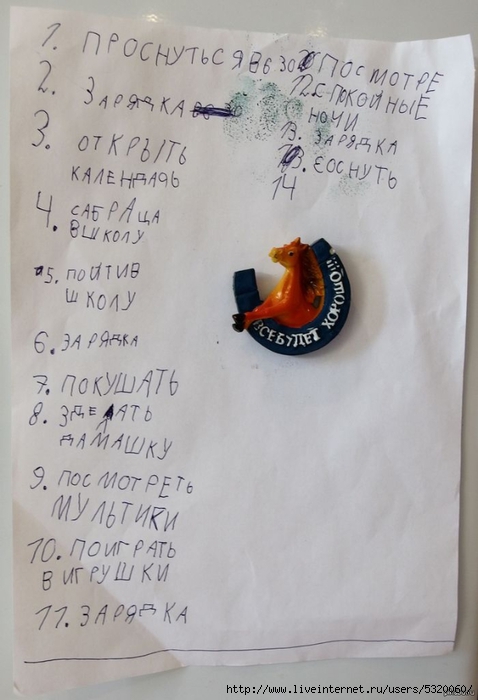 1. ПРОСНУТЬСЯ В 6 30
2. ЗАРЯДКА
3. ОТКРЫТЬ
КАЛЕНДАРЬ
4. САБРАЦА
ВШКОЛУ
5. ПОЙТИВ
ШКОЛУ
6. ЗАРЯДКА
7. ПОКУШАТЬ
8. ЗДЕЛАТЬ
ДАМАШКУ
9. ПОСМОТРЕТЬ
МУЛЬТИКИ
10. ПОИГРАТЬ
В ИГРУШКИ
11. ЗАРЯДКА
12. ПОСМОТРЕ
СПОКОЙНЫЕ
НОЧИ
13. ЗАРЯДКА
ЗОСНУТЬ
14
ВСЕ БУДЕТ ХОРОШО!!!
http://www.liveinternet.ru/users/5320060/